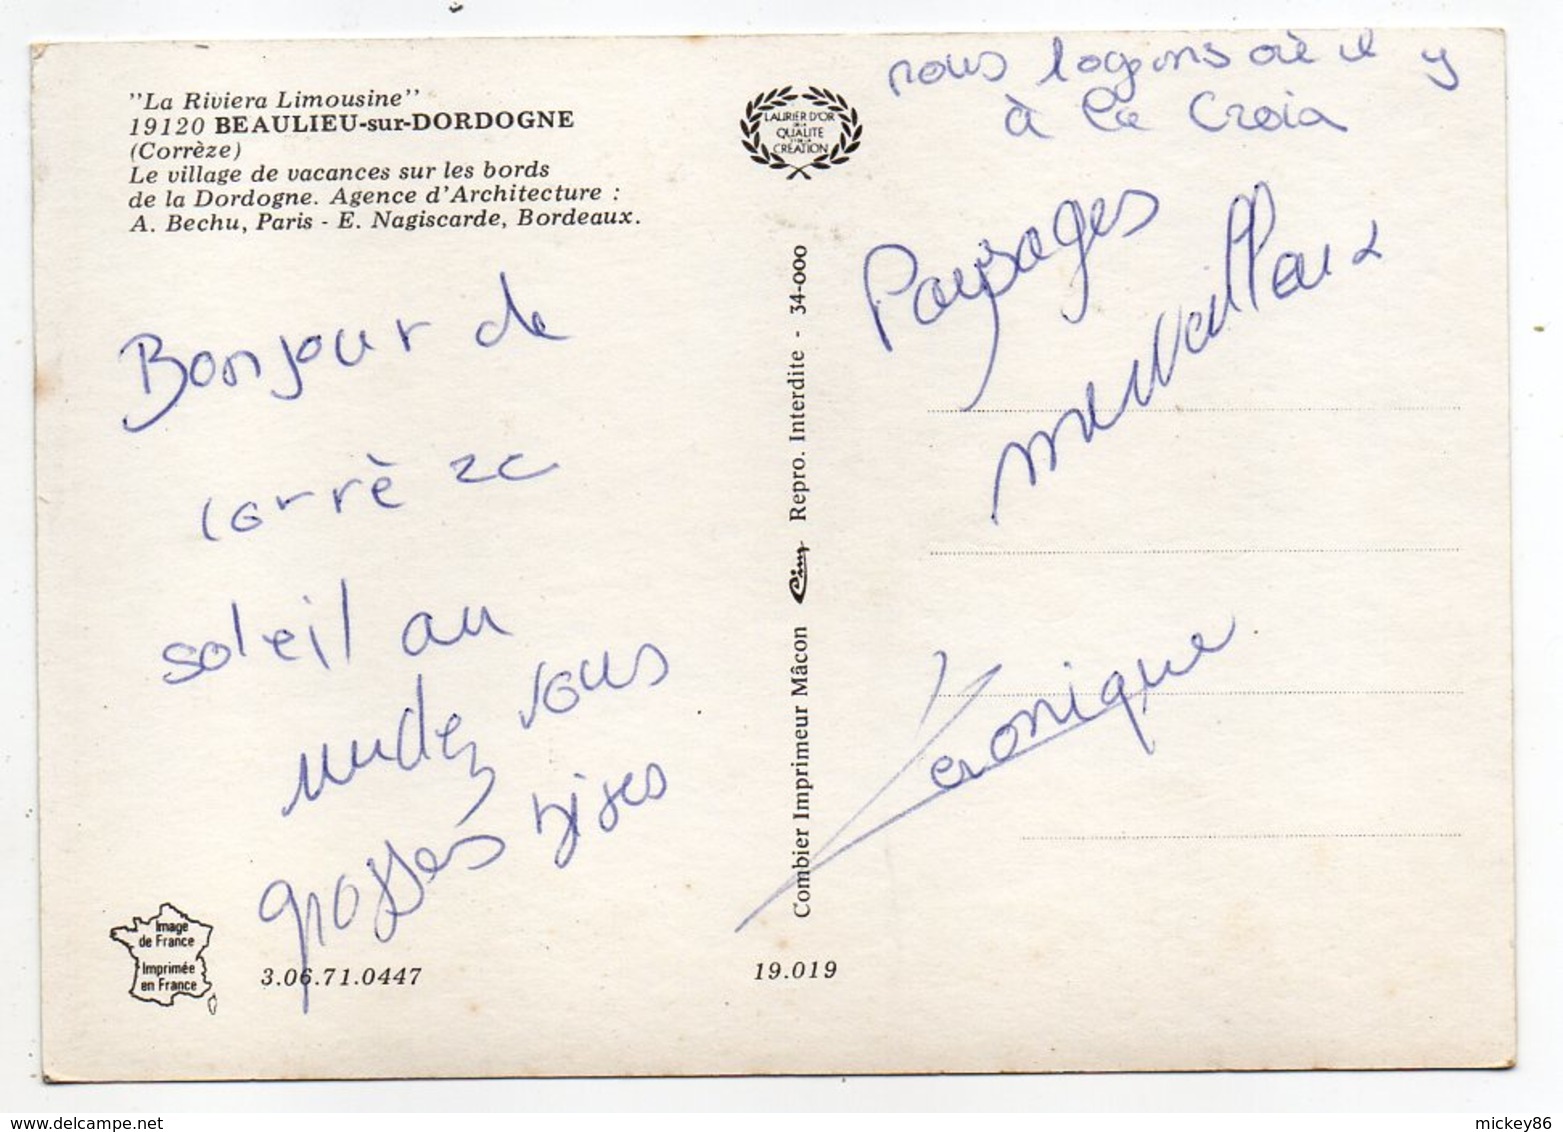 "La Riviera Limousine"
19120 BEAULIEU-sur-DORDOGNE
(Corrèze)
Le village de vacances sur les bords
de la Dordogne. Agence d'Architecture :
A. Bechu, Paris - E. Nagiscarde, Bordeaux.
Bonjour de
corrèze
soleil au
rendez vous
grosses bises
Image
de France
Imprimée
en France
3.06.71.0447
LAURIER D'OR
DE LA
QUALITE
ET DE LA
CREATION
Combier Imprimeur Mâcon Cim Repro. Interdite - 34-000
19.019
nous logeons où il y
à la Croix
Paysages
merveilleux
Véronique
delcampe.net
mickey86